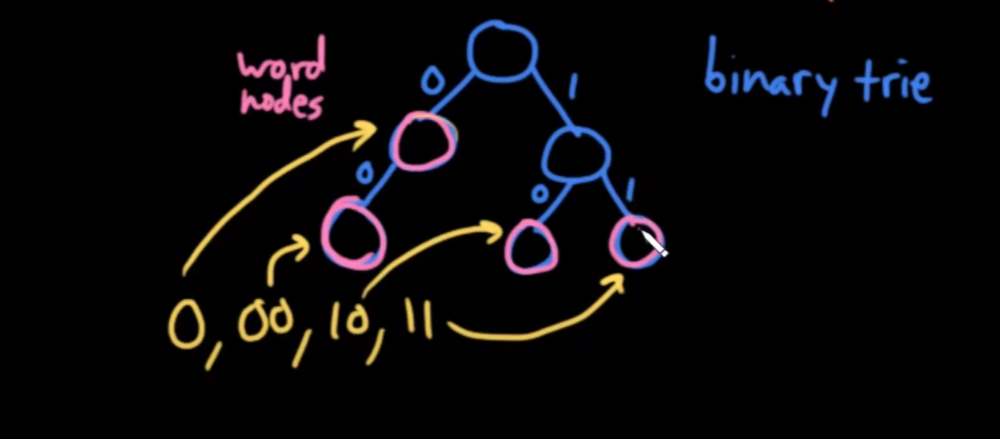 word
nodes
binary trie
0
1
0
0
1
0, 00, 10, 11